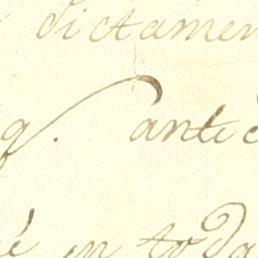 dictamen
q. ante
é en toda